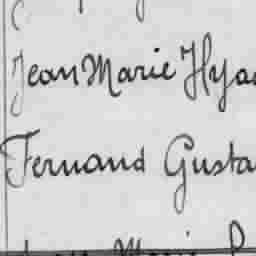 Jean Marie Hya
Fernand Gusta